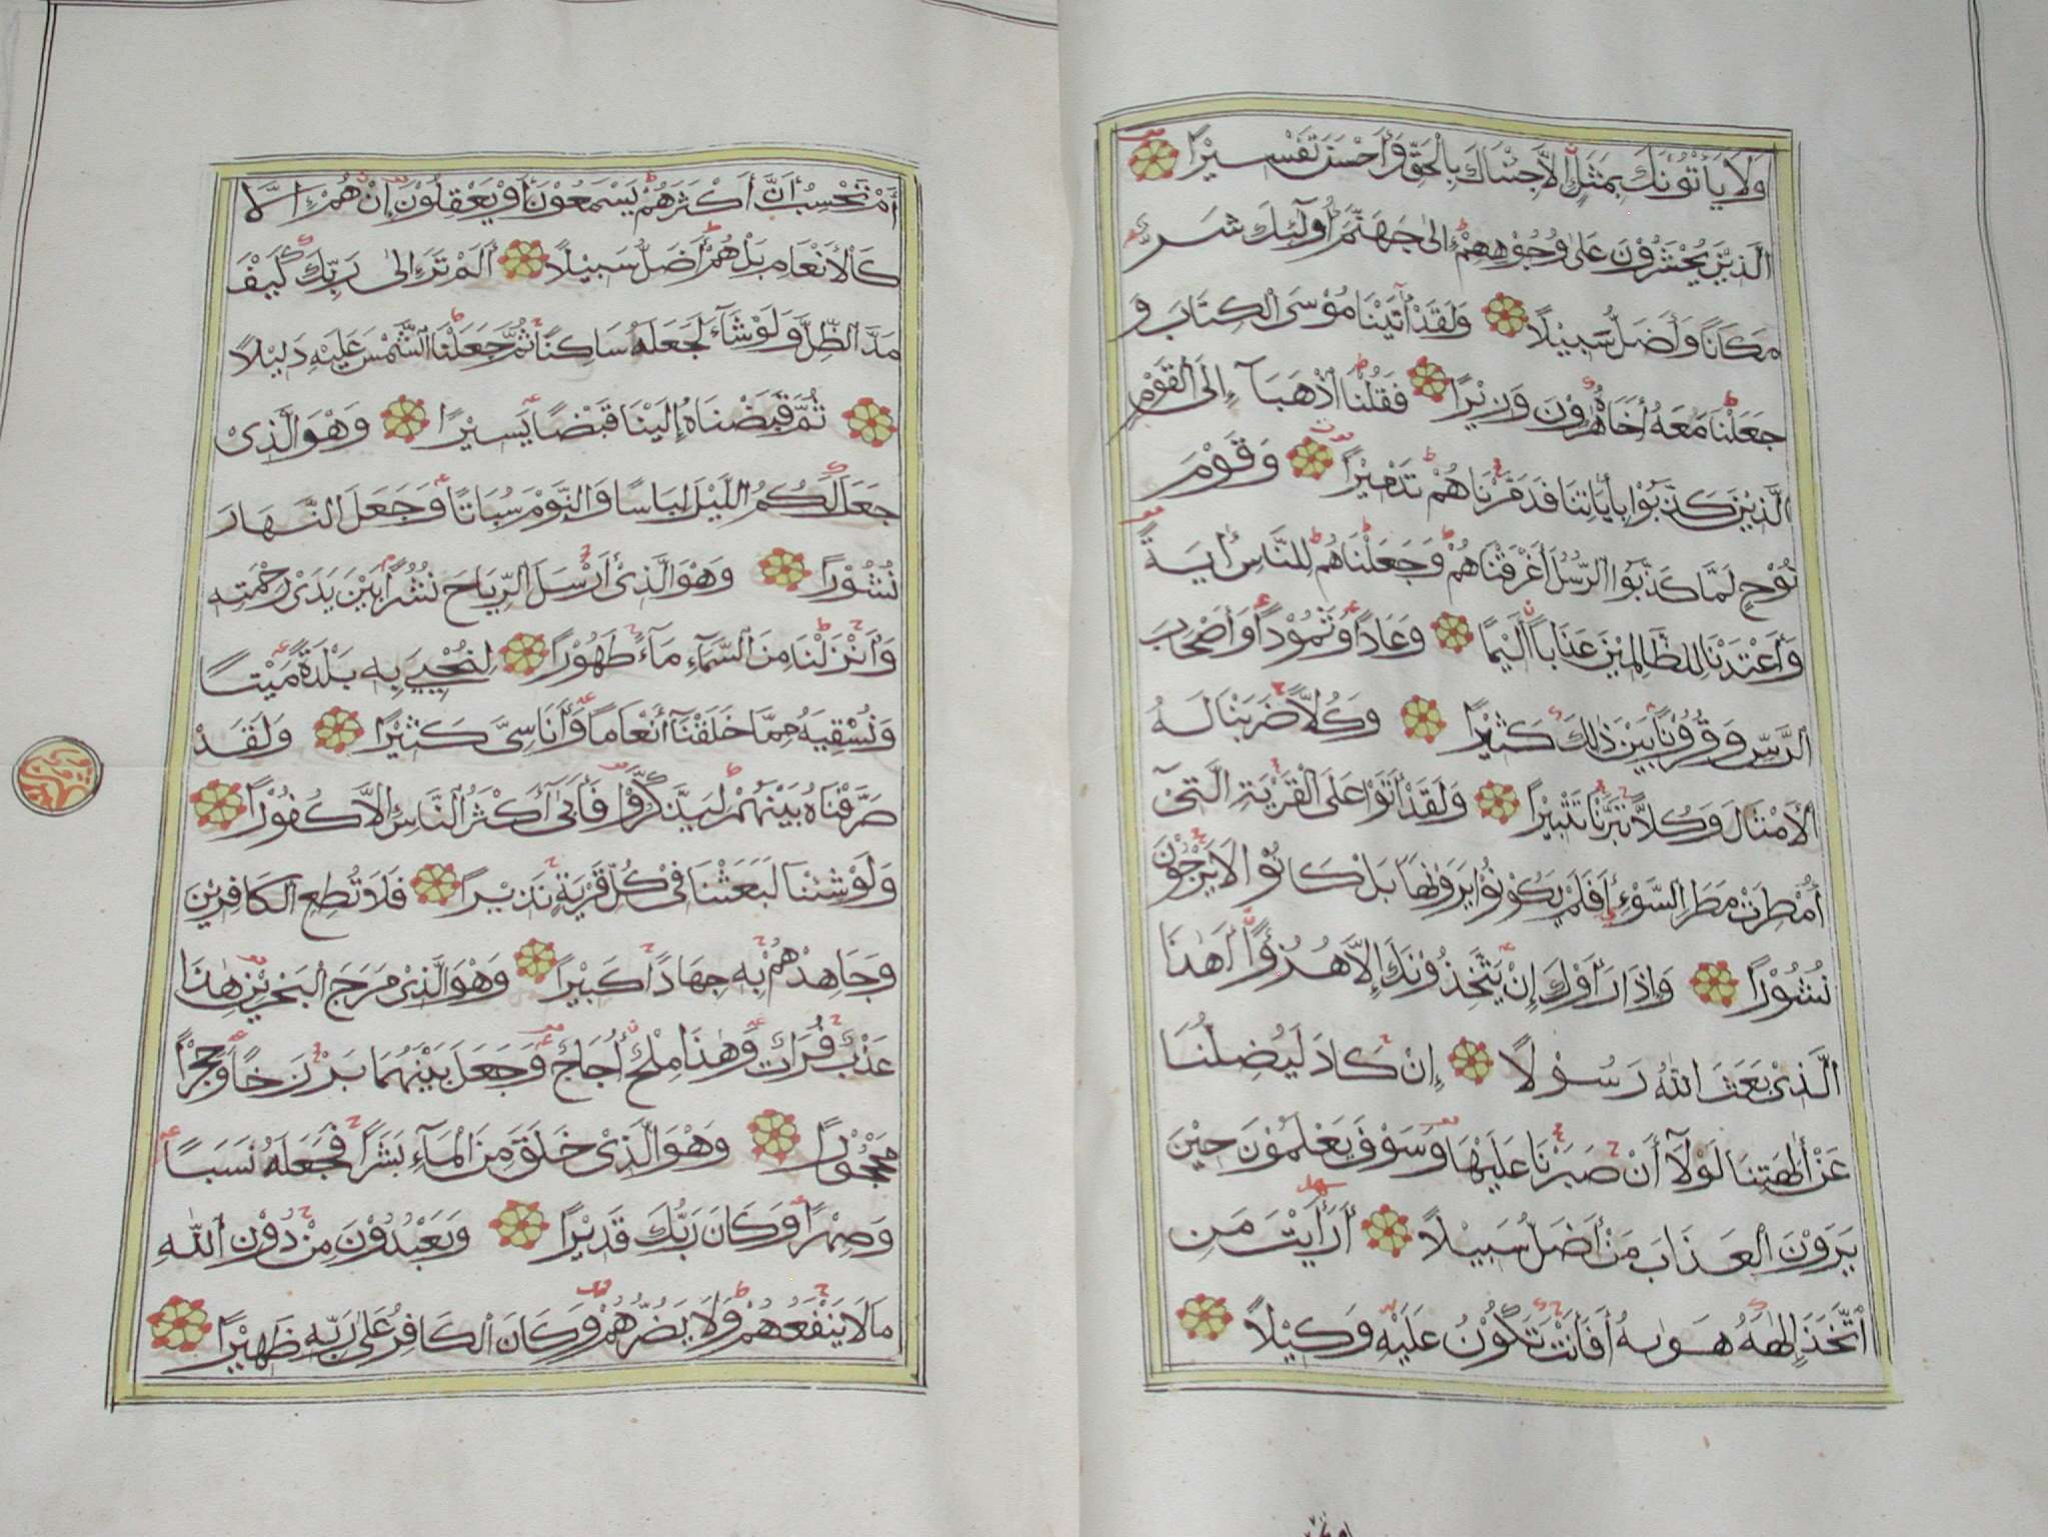 وَلَا يَأْتُونَكَ بِمَثَلٍ إِلَّا جِئْنَاكَ بِالْحَقِّ وَأَحْسَنَ تَفْسِيْرًا
الَّذِيْنَ يُحْشَرُوْنَ عَلَى وُجُوْهِهِمْ إِلَى جَهَنَّمَ أُولَٓئِكَ شَرٌّ
مَكَانًا وَأَضَلُّ سَبِيْلًا وَلَقَدْ أٰتَيْنَا مُوْسَى الْكِتَابَ وَ
جَعَلْنَا مَعَهُ أَخَاهُ هٰرُوْنَ وَزِيْرًا فَقُلْنَا اذْهَبَآ إِلَى الْقَوْمِ
الَّذِيْنَ كَذَّبُوْا بِأٰيَاتِنَا فَدَمَّرْنَاهُمْ تَدْمِيْرًا وَقَوْمَ
نُوْحٍ لَمَّا كَذَّبُوا الرُّسُلَ أَغْرَقْنَاهُمْ وَجَعَلْنَاهُمْ لِلنَّاسِ أٰيَةً
وَأَعْتَدْنَا لِلظَّالِمِيْنَ عَذَابًا أَلِيْمًا وَعَادًا وَثَمُوْدًا وَأَصْحَابَ
الرَّسِّ وَقُرُوْنًا بَيْنَ ذٰلِكَ كَثِيْرًا وَكُلًّا ضَرَبْنَا لَهُ
الْأَمْثَالَ وَكُلًّا تَبَّرْنَا تَتْبِيْرًا وَلَقَدْ أَتَوْا عَلَى الْقَرْيَةِ الَّتِيْٓ
أُمْطِرَتْ مَطَرَ السَّوْءِ أَفَلَمْ يَكُوْنُوْا يَرَوْنَهَا بَلْ كَانُوْا لَا يَرْجُوْنَ
نُشُوْرًا وَإِذَا رَأَوْكَ إِنْ يَتَّخِذُوْنَكَ إِلَّا هُزُؤًا أَهٰذَا
الَّذِيْ بَعَثَ اللهُ رَسُوْلًا إِنْ كَادَ لَيُضِلُّنَا
عَنْ أٰلِهَتِنَا لَوْلَآ أَنْ صَبَرْنَا عَلَيْهَا وَسَوْفَ يَعْلَمُوْنَ حِيْنَ
يَرَوْنَ الْعَذَابَ مَنْ أَضَلُّ سَبِيْلًا أَرَأَيْتَ مَنِ
اتَّخَذَ إِلٰهَهُ هَوٰىهُ أَفَأَنْتَ تَكُوْنُ عَلَيْهِ وَكِيْلًا
أَمْ تَحْسَبُ أَنَّ أَكْثَرَهُمْ يَسْمَعُوْنَ أَوْ يَعْقِلُوْنَ إِنْ هُمْ إِلَّا
كَالْأَنْعَامِ بَلْ هُمْ أَضَلُّ سَبِيْلًا أَلَمْ تَرَ إِلَى رَبِّكَ كَيْفَ
مَدَّ الظِّلَّ وَلَوْ شَآءَ لَجَعَلَهُ سَاكِنًا ثُمَّ جَعَلْنَا الشَّمْسَ عَلَيْهِ دَلِيْلًا
ثُمَّ قَبَضْنَاهُ إِلَيْنَا قَبْضًا يَسِيْرًا وَهُوَ الَّذِيْ
جَعَلَ لَكُمُ اللَّيْلَ لِبَاسًا وَالنَّوْمَ سُبَاتًا وَجَعَلَ النَّهَارَ
نُشُوْرًا وَهُوَ الَّذِيْ أَرْسَلَ الرِّيَاحَ نُشُرًا بَيْنَ يَدَيْ رَحْمَتِهِ
وَأَنْزَلْنَا مِنَ السَّمَآءِ مَآءً طَهُوْرًا لِنُحْيِيَ بِهِ بَلْدَةً مَيْتًا
وَنُسْقِيَهُ مِمَّا خَلَقْنَآ أَنْعَامًا وَأَنَاسِيَّ كَثِيْرًا وَلَقَدْ
صَرَّفْنَاهُ بَيْنَهُمْ لِيَذَّكَّرُوْا فَأَبَىٓ أَكْثَرُ النَّاسِ إِلَّا كُفُوْرًا
وَلَوْ شِئْنَا لَبَعَثْنَا فِيْ كُلِّ قَرْيَةٍ نَذِيْرًا فَلَا تُطِعِ الْكَافِرِيْنَ
وَجَاهِدْهُمْ بِهِ جِهَادًا كَبِيْرًا وَهُوَ الَّذِيْ مَرَجَ الْبَحْرَيْنِ هٰذَا
عَذْبٌ فُرَاتٌ وَهٰذَا مِلْحٌ أُجَاجٌ وَجَعَلَ بَيْنَهُمَا بَرْزَخًا وَحِجْرًا
مَحْجُوْرًا وَهُوَ الَّذِيْ خَلَقَ مِنَ الْمَآءِ بَشَرًا فَجَعَلَهُ نَسَبًا
وَصِهْرًا وَكَانَ رَبُّكَ قَدِيْرًا وَيَعْبُدُوْنَ مِنْ دُوْنِ اللهِ
مَا لَا يَنْفَعُهُمْ وَلَا يَضُرُّهُمْ وَكَانَ الْكَافِرُ عَلَى رَبِّهِ ظَهِيْرًا